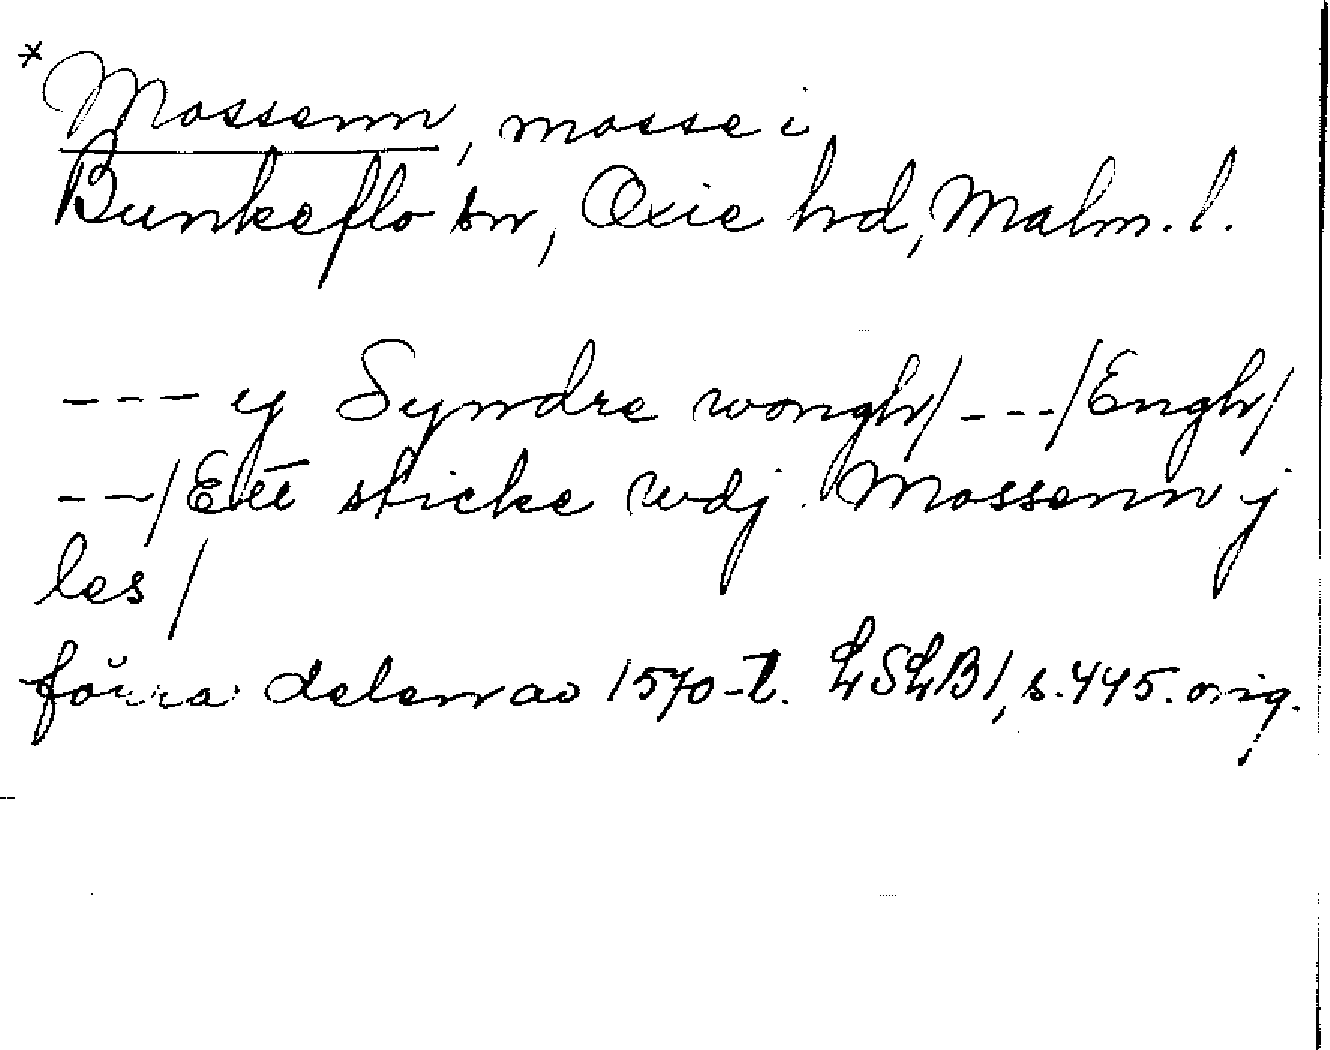 *Mossenn, mosse i
Bunkeflo sn, Oxie hd, Malm. l.
--- ij Syndre wongh/ ---/Engh/
---/Ett sticke wdj Mossenn j
les/
förra delen av 1570-t. LSLB 1, s. 445. orig.